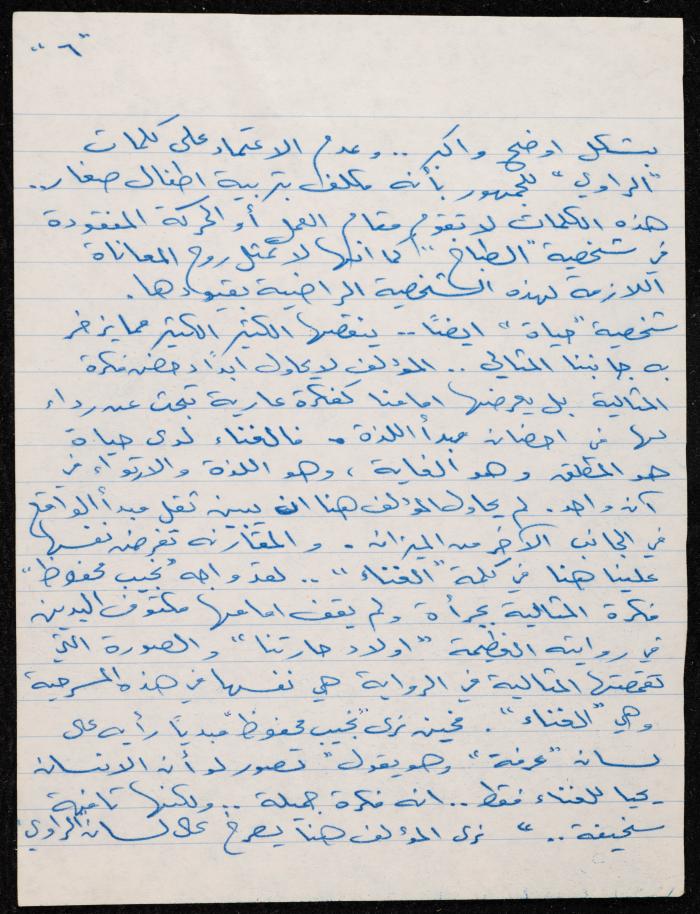 "٦"
بشكل اوضح واكبر .. وعدم الاعتماد على كلمات
"الراوي" للجمهور بأنه مكلف بتربية اطفال صغار ..
هذه الكلمات لا تقوم مقام العمل أو الحركة المفقودة
في شخصية "الطباخ" كما انها لا تمثل روح المعاناة
اللازمة لهذه الشخصية الراضية بقيودها .
شخصية "حياة" ايضًا .. ينقصها الكثير الكثير مما يزخر
به جانبنا المثالي .. المؤلف لا يحاول ابدًا دحض فكرة
المثالية بل يعرضها امامنا كفكرة عارية تبحث عن رداء
لها في احضان مبدأ اللذة . فالغناء لدى حياة
هو المنطلق وهو الغاية ، وهو اللذة والارتواء في
آن واحد . لم يحاول المؤلف هنا ان يبين ثقل مبدأ الواقع
في الجانب الآخر من الميزان . والمقارنه تفرض نفسها
علينا هنا في كلمة "الغناء" .. لقد واجه "نجيب محفوظ"
فكرة المثالية بجرأة ولم يقف امامها مكتوف اليدين
في روايته العظيمة "اولاد حارتنا" والصورة التي
تقمصتها المثالية في الرواية هي نفسها في هذه المسرحية
وهي "الغناء" . فحين نرى "نجيب محفوظ" مبديًا رأيه على
لسان "عرفة" وهو يقول "تصور لو أن الانسان
يحيا للغناء فقط .. انه فكرة جميلة .. ولكنها تافهة
سخيفة .. " نرى المؤلف هنا يصرخ على لسان "الراوي"